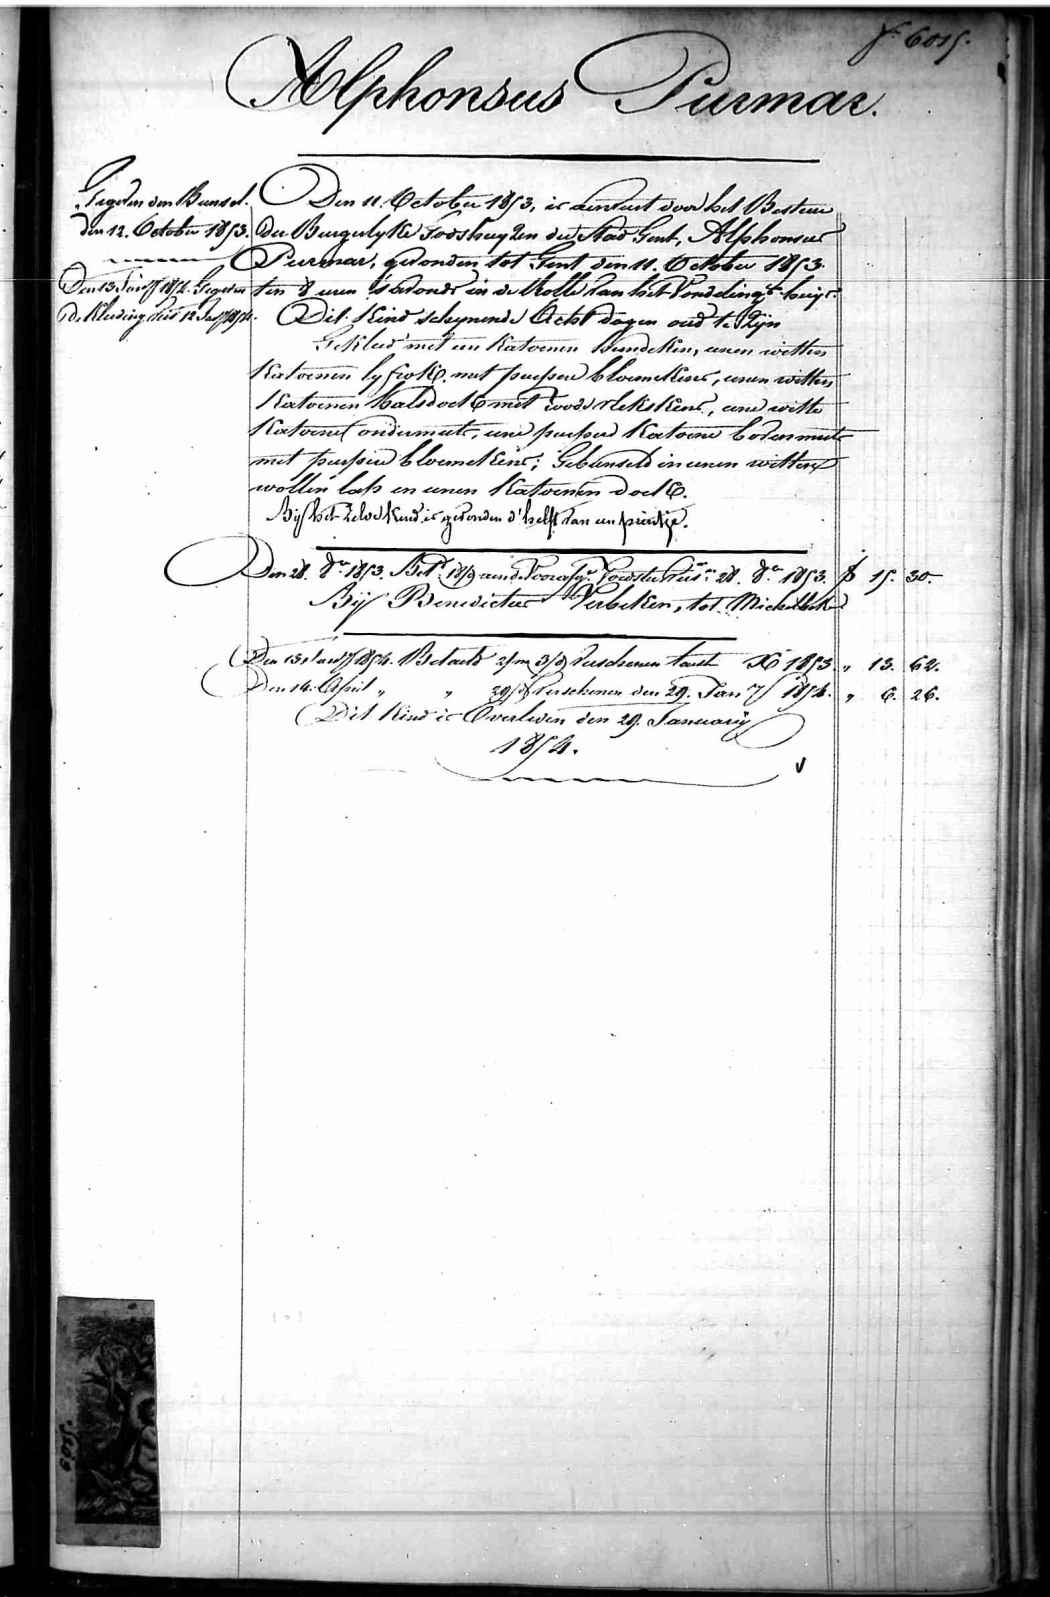 6015.
Alphonsus Purmar.
Gegeven den Bunsel.
den 12. October 1853.
Den 13 Jan͞y 1854. Gegeven
de Kleeding
Den 11. October 1853, is aenveert door het Bestuer
der Burgerlyke Godshuyzen der Stad Gent, Alphonsus
Purmar, gevonden tot Gent den 11. October 1853.
ten 8 uren 's avonds in de Rolle van het Vondelings huys.
Dit Kind schynende Acht dagen oud te zyn
Gekleed met een Katoenen hemdeken, eenen witten
Katoenen lyfrok, met purpere bloemekens, eenen witten
Katoenen halsdoek met roode vlekskens, eene witte
Katoene ondermuts, eene purpere Katoene bovenmuts
met purpere bloemekens; Gebunseld in eenen witten
wollen lap en eenen Katoenen doek.
Bij het zelve Kind is gevonden d'helft van een prentje.
Den 28. 8er 1853. 28. 8er 1853. 15. 30.
Bij Benedictus Verbeken, tot Michelbeke
Den 13 Betaeld 3/m 3/d verschenen 1853. " 13. 62.
Den 14. April " " 29/d verschenen den 29. Jan͞y 1854. " 6. 26.
Dit Kind is Overleden den 29. Januarij
1854.
6015